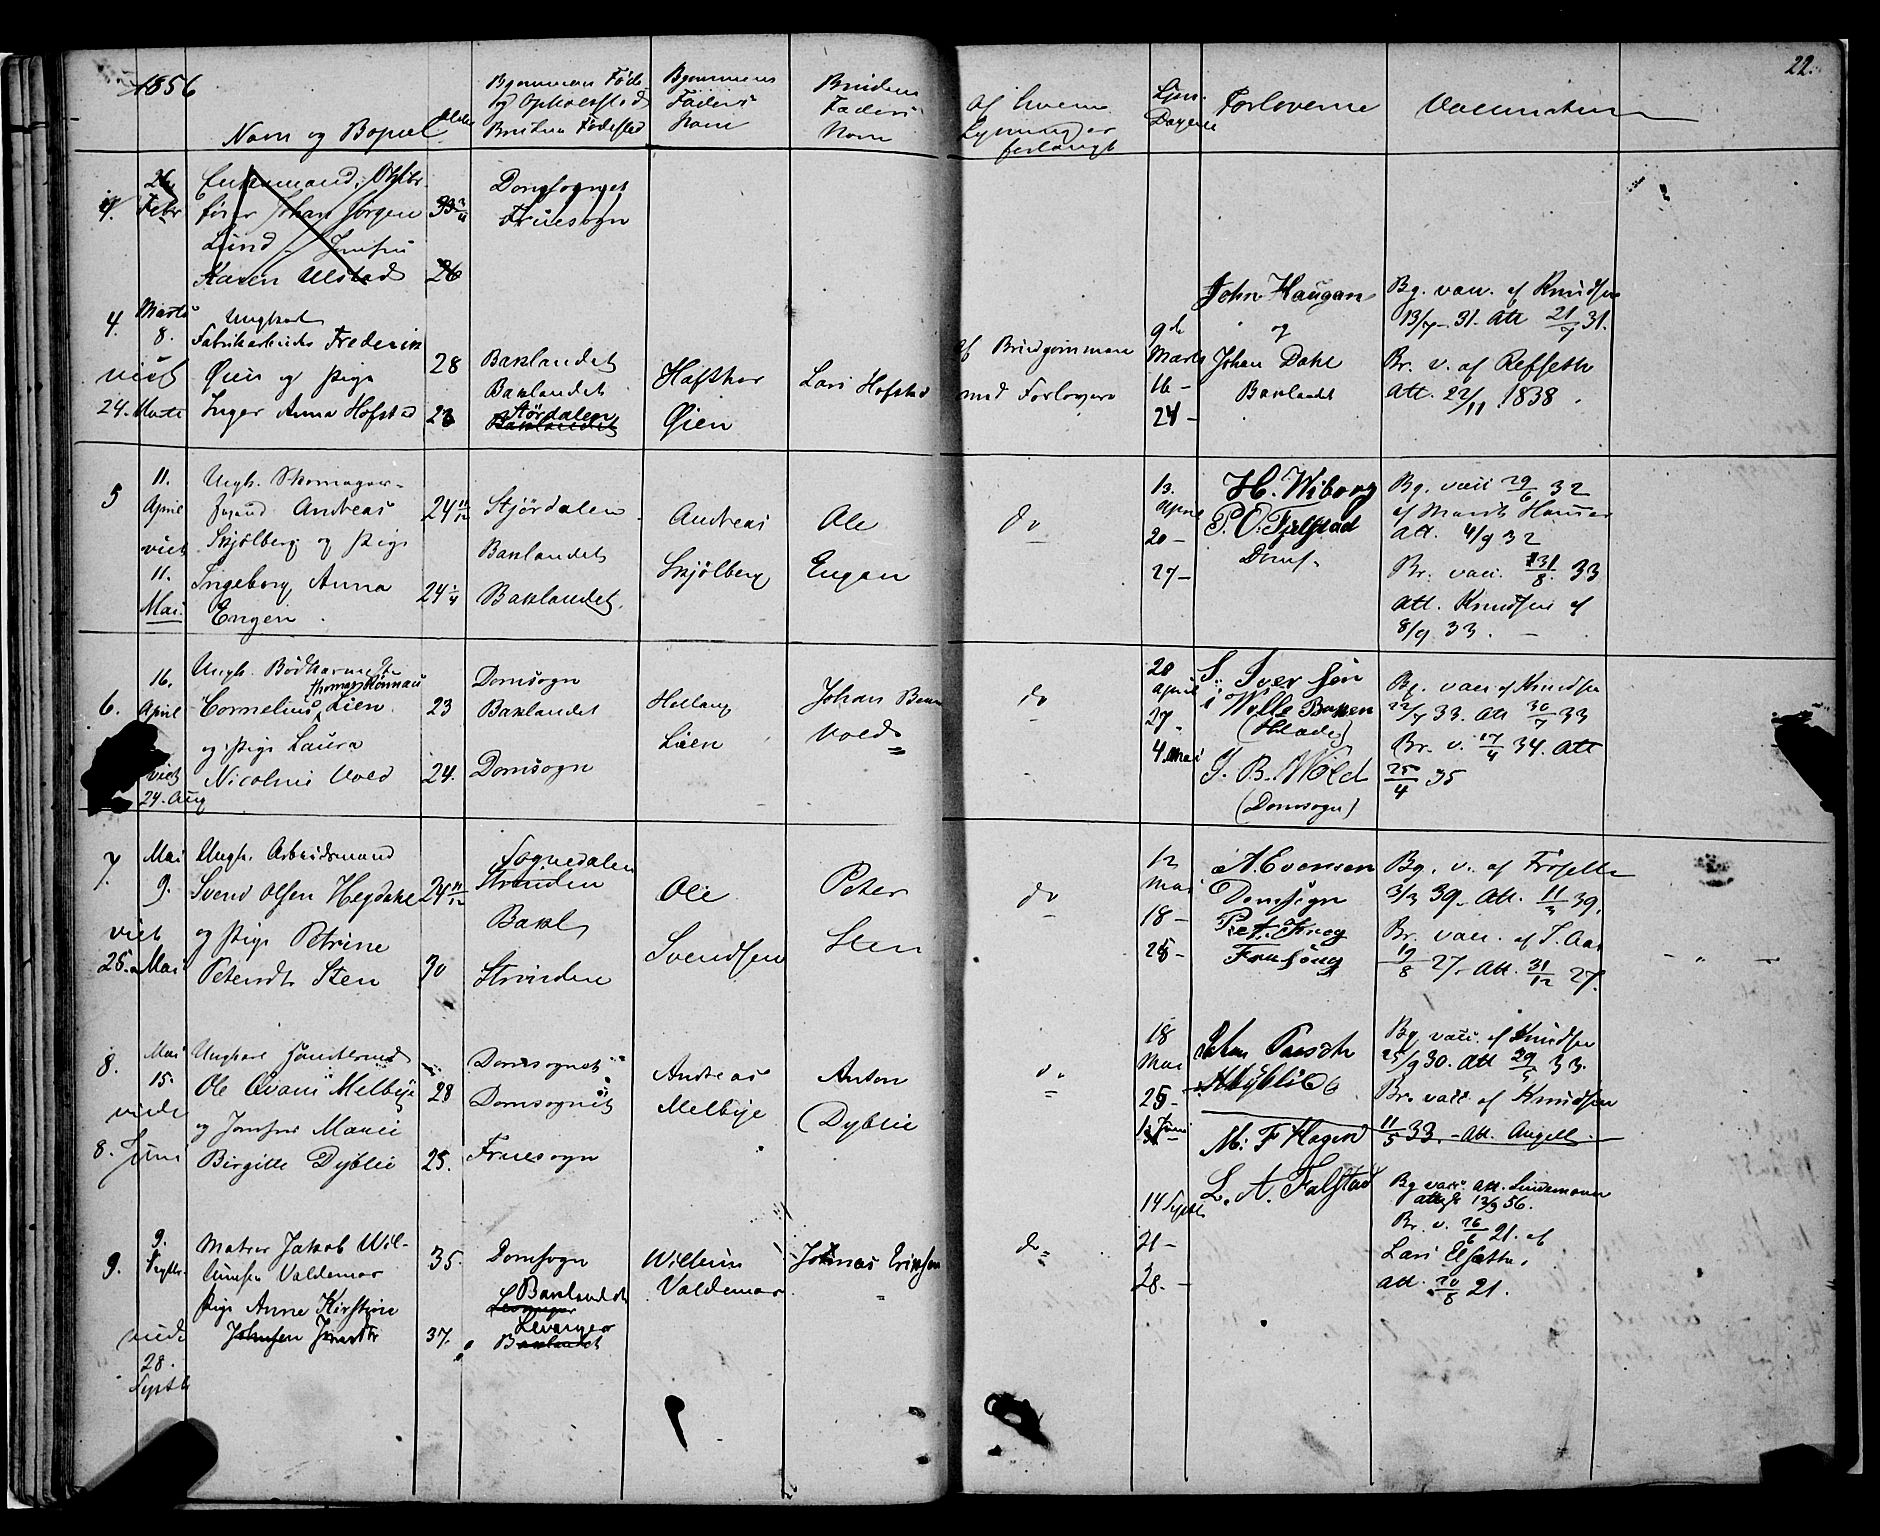 22.
1856
Navn og Bopæl
Alder
Bgommens Føde
og Opholdssted
Brudens Fødested
Bgommens
Faders
Navn
Brudens
Faders
Navn
af hvem
Lysning er
forlangt
Lysn.
Dagene
Forloverne
Vaccination
4.
26
Febr
Johan Jörgen
Lund - Jomfru
Karen Ulstad
26
Domsognet
Fruesogn
4.
Marts
8.
viet
24. Marts
Ungkarl
Fabrikarbeider Frederik
Øien og Pige
Inger Anna Hofstad
28
23
Baklandet
Baklandet
Stördalen
Baklandet
Hafthor
Øien
Lars Hofstad
af Brudgommen
med Forlovere
9de
Marts
16 -
24 -
John Haugan
og
Johan Dahl
Baklandet
Bg. vacc. af Knudsen
13/7 - 31. Att 21/7 31.
Br. v. af Resseth
Att. 22/11 1838.
5
11.
April
viet
11.
Mai
Ungk. Skomager-
svend Andreas
Skjølberg og Pige
Ingeborg Anna
Engen
24 11/12
24 1/4
Stjördalen
Baklandet
Baklandet.
Andreas
Skjølberg
Ole
Engen
do
13.
April
20 -
27 -
H. Wiborg
P. O. Fjelstad
Doms.
Bg. vacc 29/6 32
af Marit Hansen
Att. 4/9 32
Br. vacc. 31/8. 33
Att. Knudsen af
8/9 33. -
6.
16.
April
viet
24. Aug
Ungk. Bödkermester
Thomas Rönnau
Cornelius Lien
og Pige Laura
Nicoline Vold
23
24.
Domsogn
Baklandet
Domsogn
Lien
Johan Bernt
Vold
do
20
April
27 -
4. Mai
S. Iversen
i Wolls Bakken
(Hlade)
J. B. Wold
(Domsogn)
Bg. vacc. af Knudsen
22/7 33. Att 30/7 33
Br. v. 17/4 34. Att
25/4 35
7.
Mai
9.
viet
25. Mai
Ungk. Arbeidsmand
Svend Olsen Hegdahl
og Pige Petrine
Petersdtr Sten
24 11/12
30
Sognedalen
Strinden
Bakl
Strinden
Ole
Svendsen
Peter
Sten
do
12
Mai
18 -
25 -
A. Evensen
Domsogn
Bg. v. af Frösetter
3/3 39. Att. 11/3 39.
Br. vacc. af T. Aas
19/8 27. Att. 31/12 27.
8.
Mai
15.
viede
8. Juni
Ungkarl
Ole Qvam Melbÿe
og Jomfru Marie
Birgitte Dyblie
28
25.
Domsognet
Domsognet
Fruesogn
Andreas
Melbÿe
Anton
Dyblie
do
18
Mai
25 -
1 Juni
Bg. vacc. af Knudsen
25/9 30. Att 29/5 33.
Br. vacc. af Knudsen
11/5 33. - Att. Angell
9.
9.
Septbr.
viede
28.
Septb
Matros Jakob Wil-
helmsen Valdemar
Pige Anne Kirstine
35.
37.
Domsogn
Baklandet
Levanger
Levanger
Baklandet
Wilhelm
Valdemar
Johnas Eriksen
do
14 Septbr
21 -
28. -
M. F. Hagen
L. A. Falstad
Bg vacc. att. Lindemann
attest 13/9 56.
Br. v. 26/6 21. af
Lars Elsætter
Att. 20/8 21.